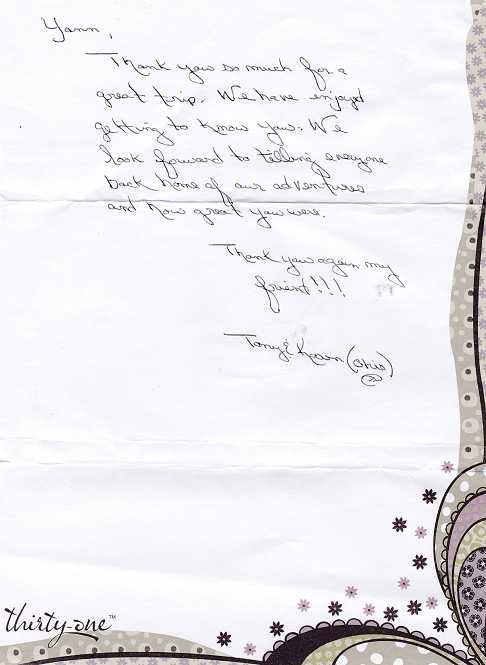 Yann,
Thank you so much for a
great trip. We have enjoyed
getting to know you. We
look forward to telling everyone
back home of our adventures
and how great you were.
Thank you again my
friend!!!
Tony & Karen (Ohio)
thirty-one™